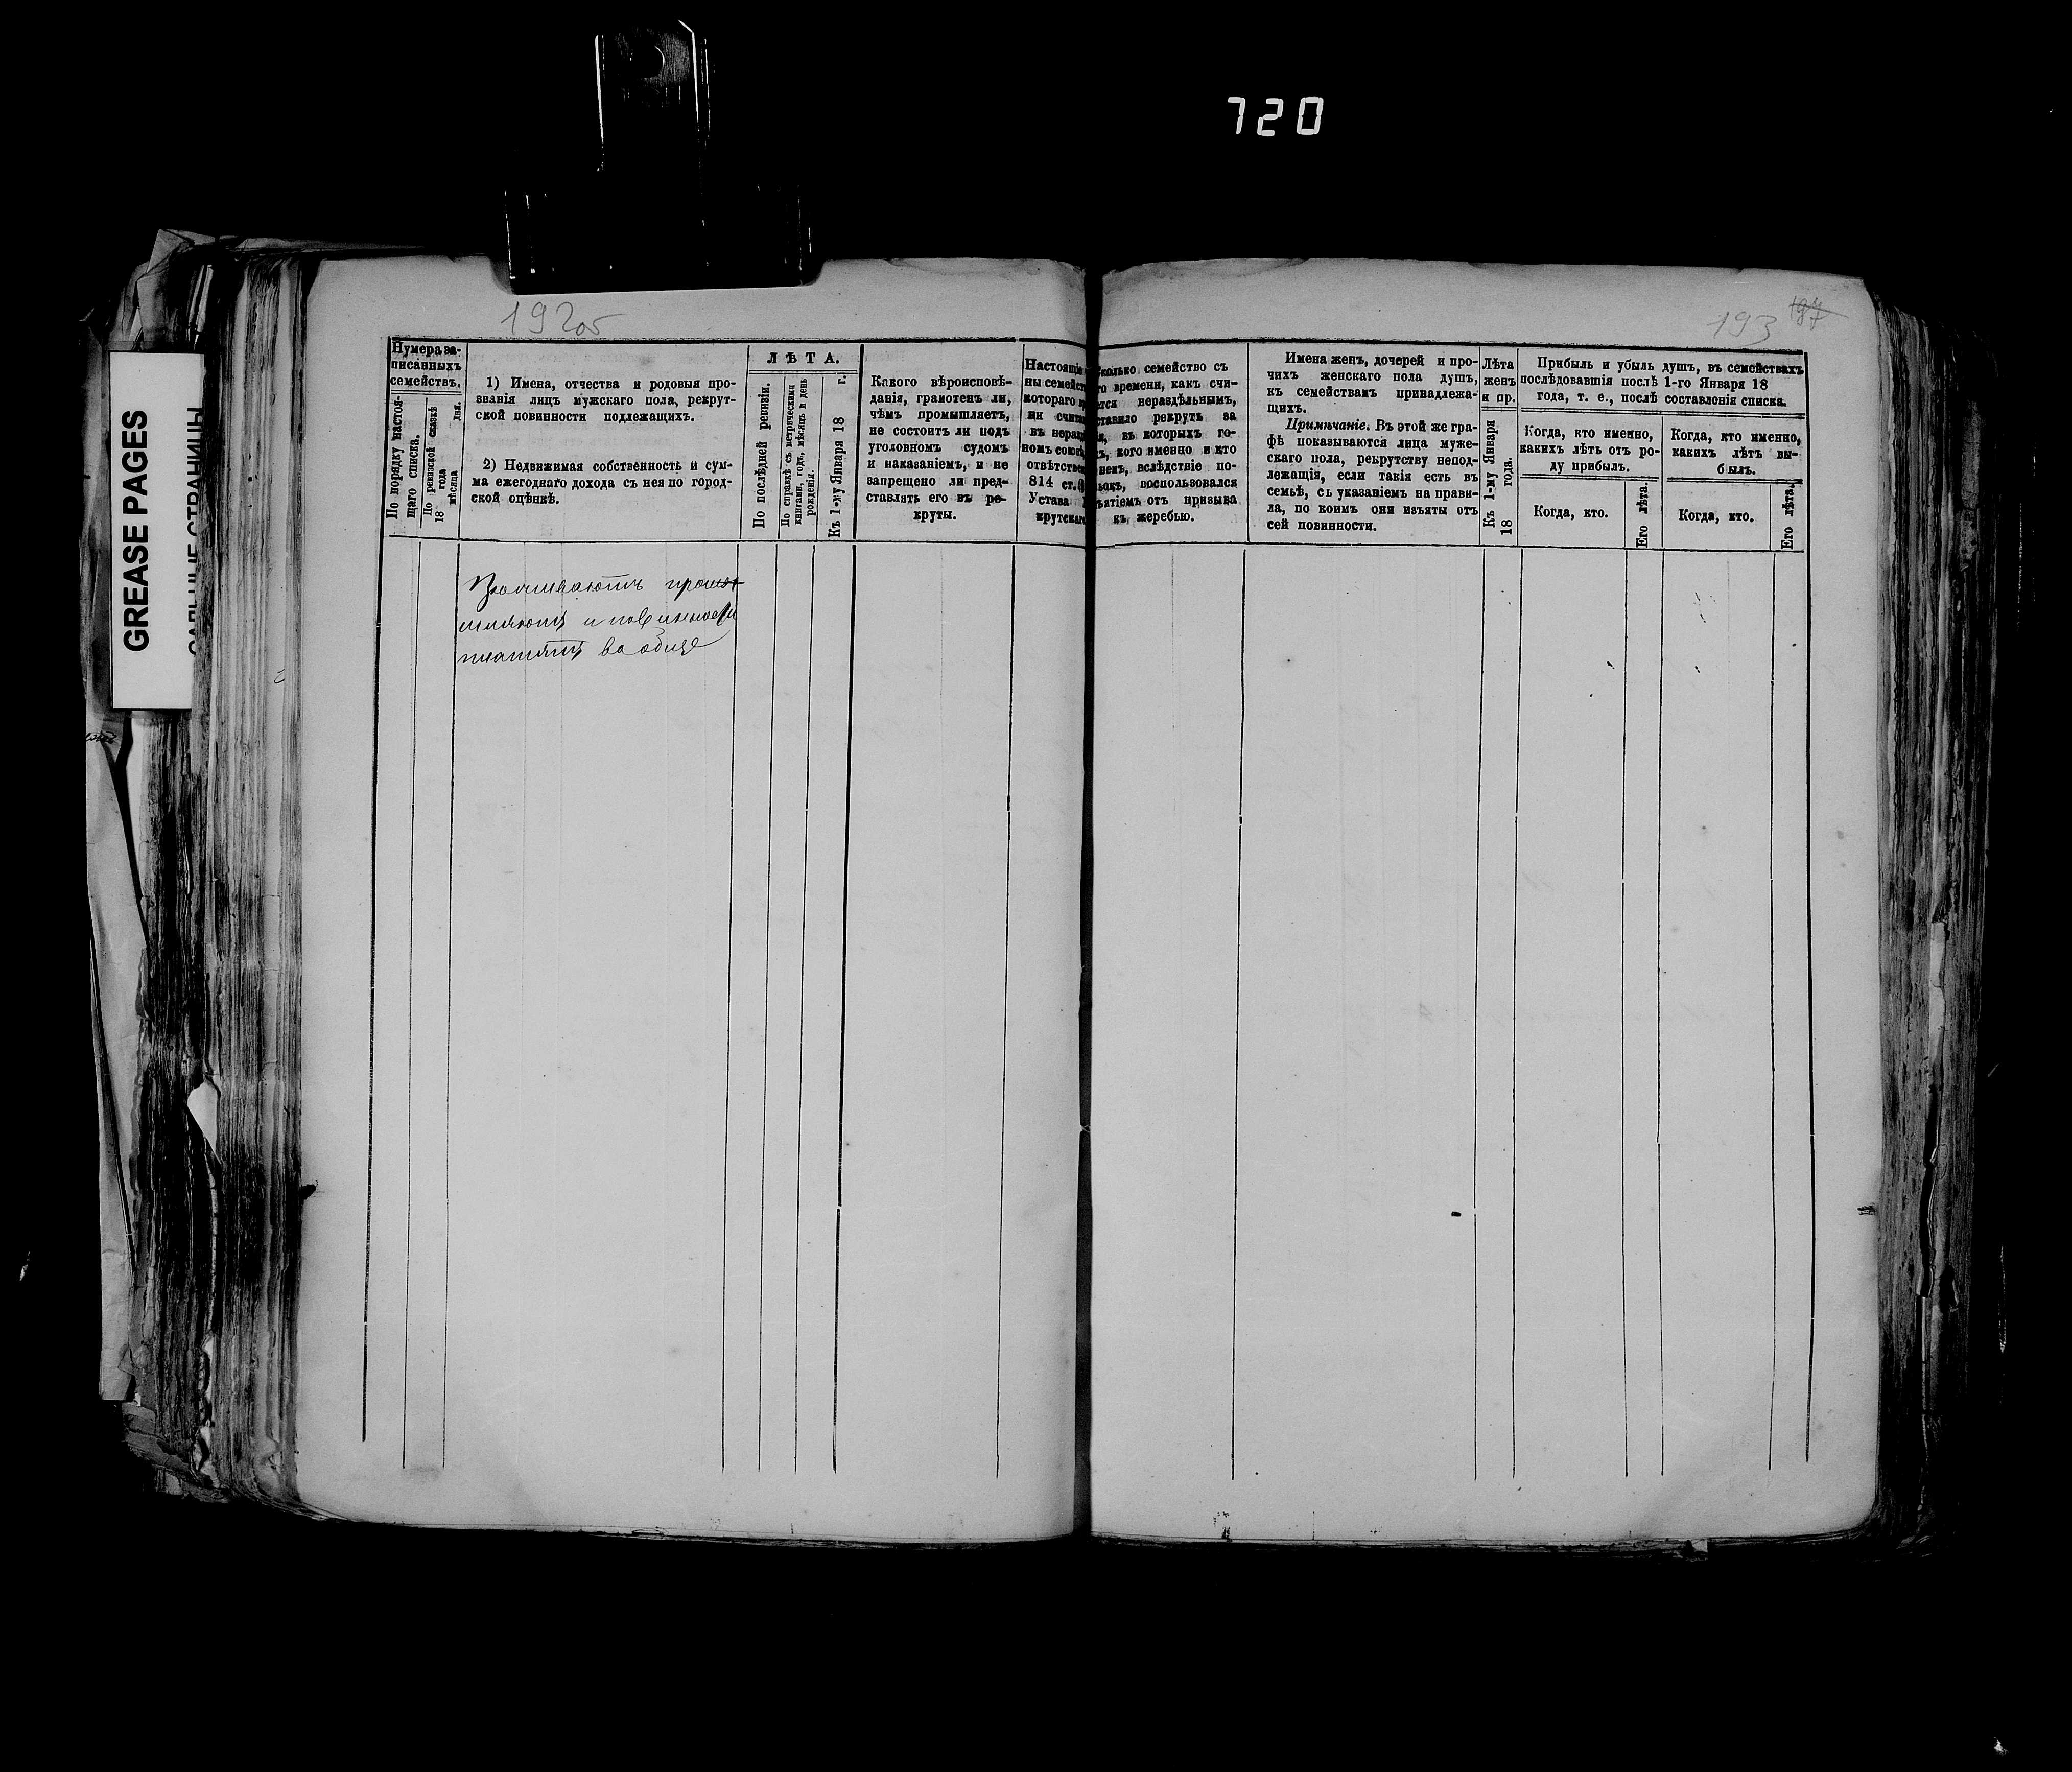 720
GREASE PAGES
192об
193
197
Нумера за-
писанныхъ
семействъ.
По порядку настоя-
щаго списка.
По ревизской сказкѣ
18 года
мѣсяца дня.
1) Имена, отчества и родовыя про-
званія лицъ мужскаго пола, рекрут-
ской повинности подлежащихъ.
2) Недвижимая собственность и сум-
ма ежегоднаго дохода съ нея по город-
ской оцѣнкѣ.
ЛѢТА.
По послѣдней ревизіи.
По справкѣ съ метрическими
книгами, годъ, мѣсяцъ и день
рожденія.
Къ 1-му Января 18 г.
Какого вѣроисповѣ-
данія, грамотенъ ли,
чѣмъ промышляетъ,
не состоитъ ли подъ
уголовномъ судомъ
и наказаніемъ, и не
запрещено ли пред-
ставлять его въ ре-
круты.
Настоящі
ны семейст
котораго в
ни счита
въ нераз
номъ союз
отвѣтствен
814 ст.
Устава
крутскаг
колько семейство съ
го времени, какъ счи-
ется нераздѣльнымъ,
ставило рекрутъ за
я, въ которыхъ го-
хъ, кого именно и кто
немъ, вслѣдствіе по-
ьокъ, воспользовался
ъятіемъ отъ призыва
къ жеребью.
Имена женъ, дочерей и про-
чихъ женскаго пола душъ,
къ семействамъ принадлежа-
щихъ.
Примѣчаніе. Въ этой же гра-
фѣ показываются лица муже-
скаго пола, рекрутству непод-
лежащія, если такія есть въ
семьѣ, съ указаніемъ на прави-
ла, по коимъ они изъяты отъ
сей повинности.
Лѣта
женъ
и пр.
Къ 1-му Января
18 года.
Прибыль и убыль душъ, въ семействахъ
послѣдовавшія послѣ 1-го Января 18
года, т. е., послѣ составленія списка.
Когда, кто именно,
какихъ лѣтъ отъ ро-
ду прибылъ.
Когда, кто.
Его лѣта.
Когда, кто именно,
какихъ лѣтъ вы-
былъ.
Когда, кто.
Его лѣта.
Проживаютъ промы
шляютъ и повинности
платятъ вообще